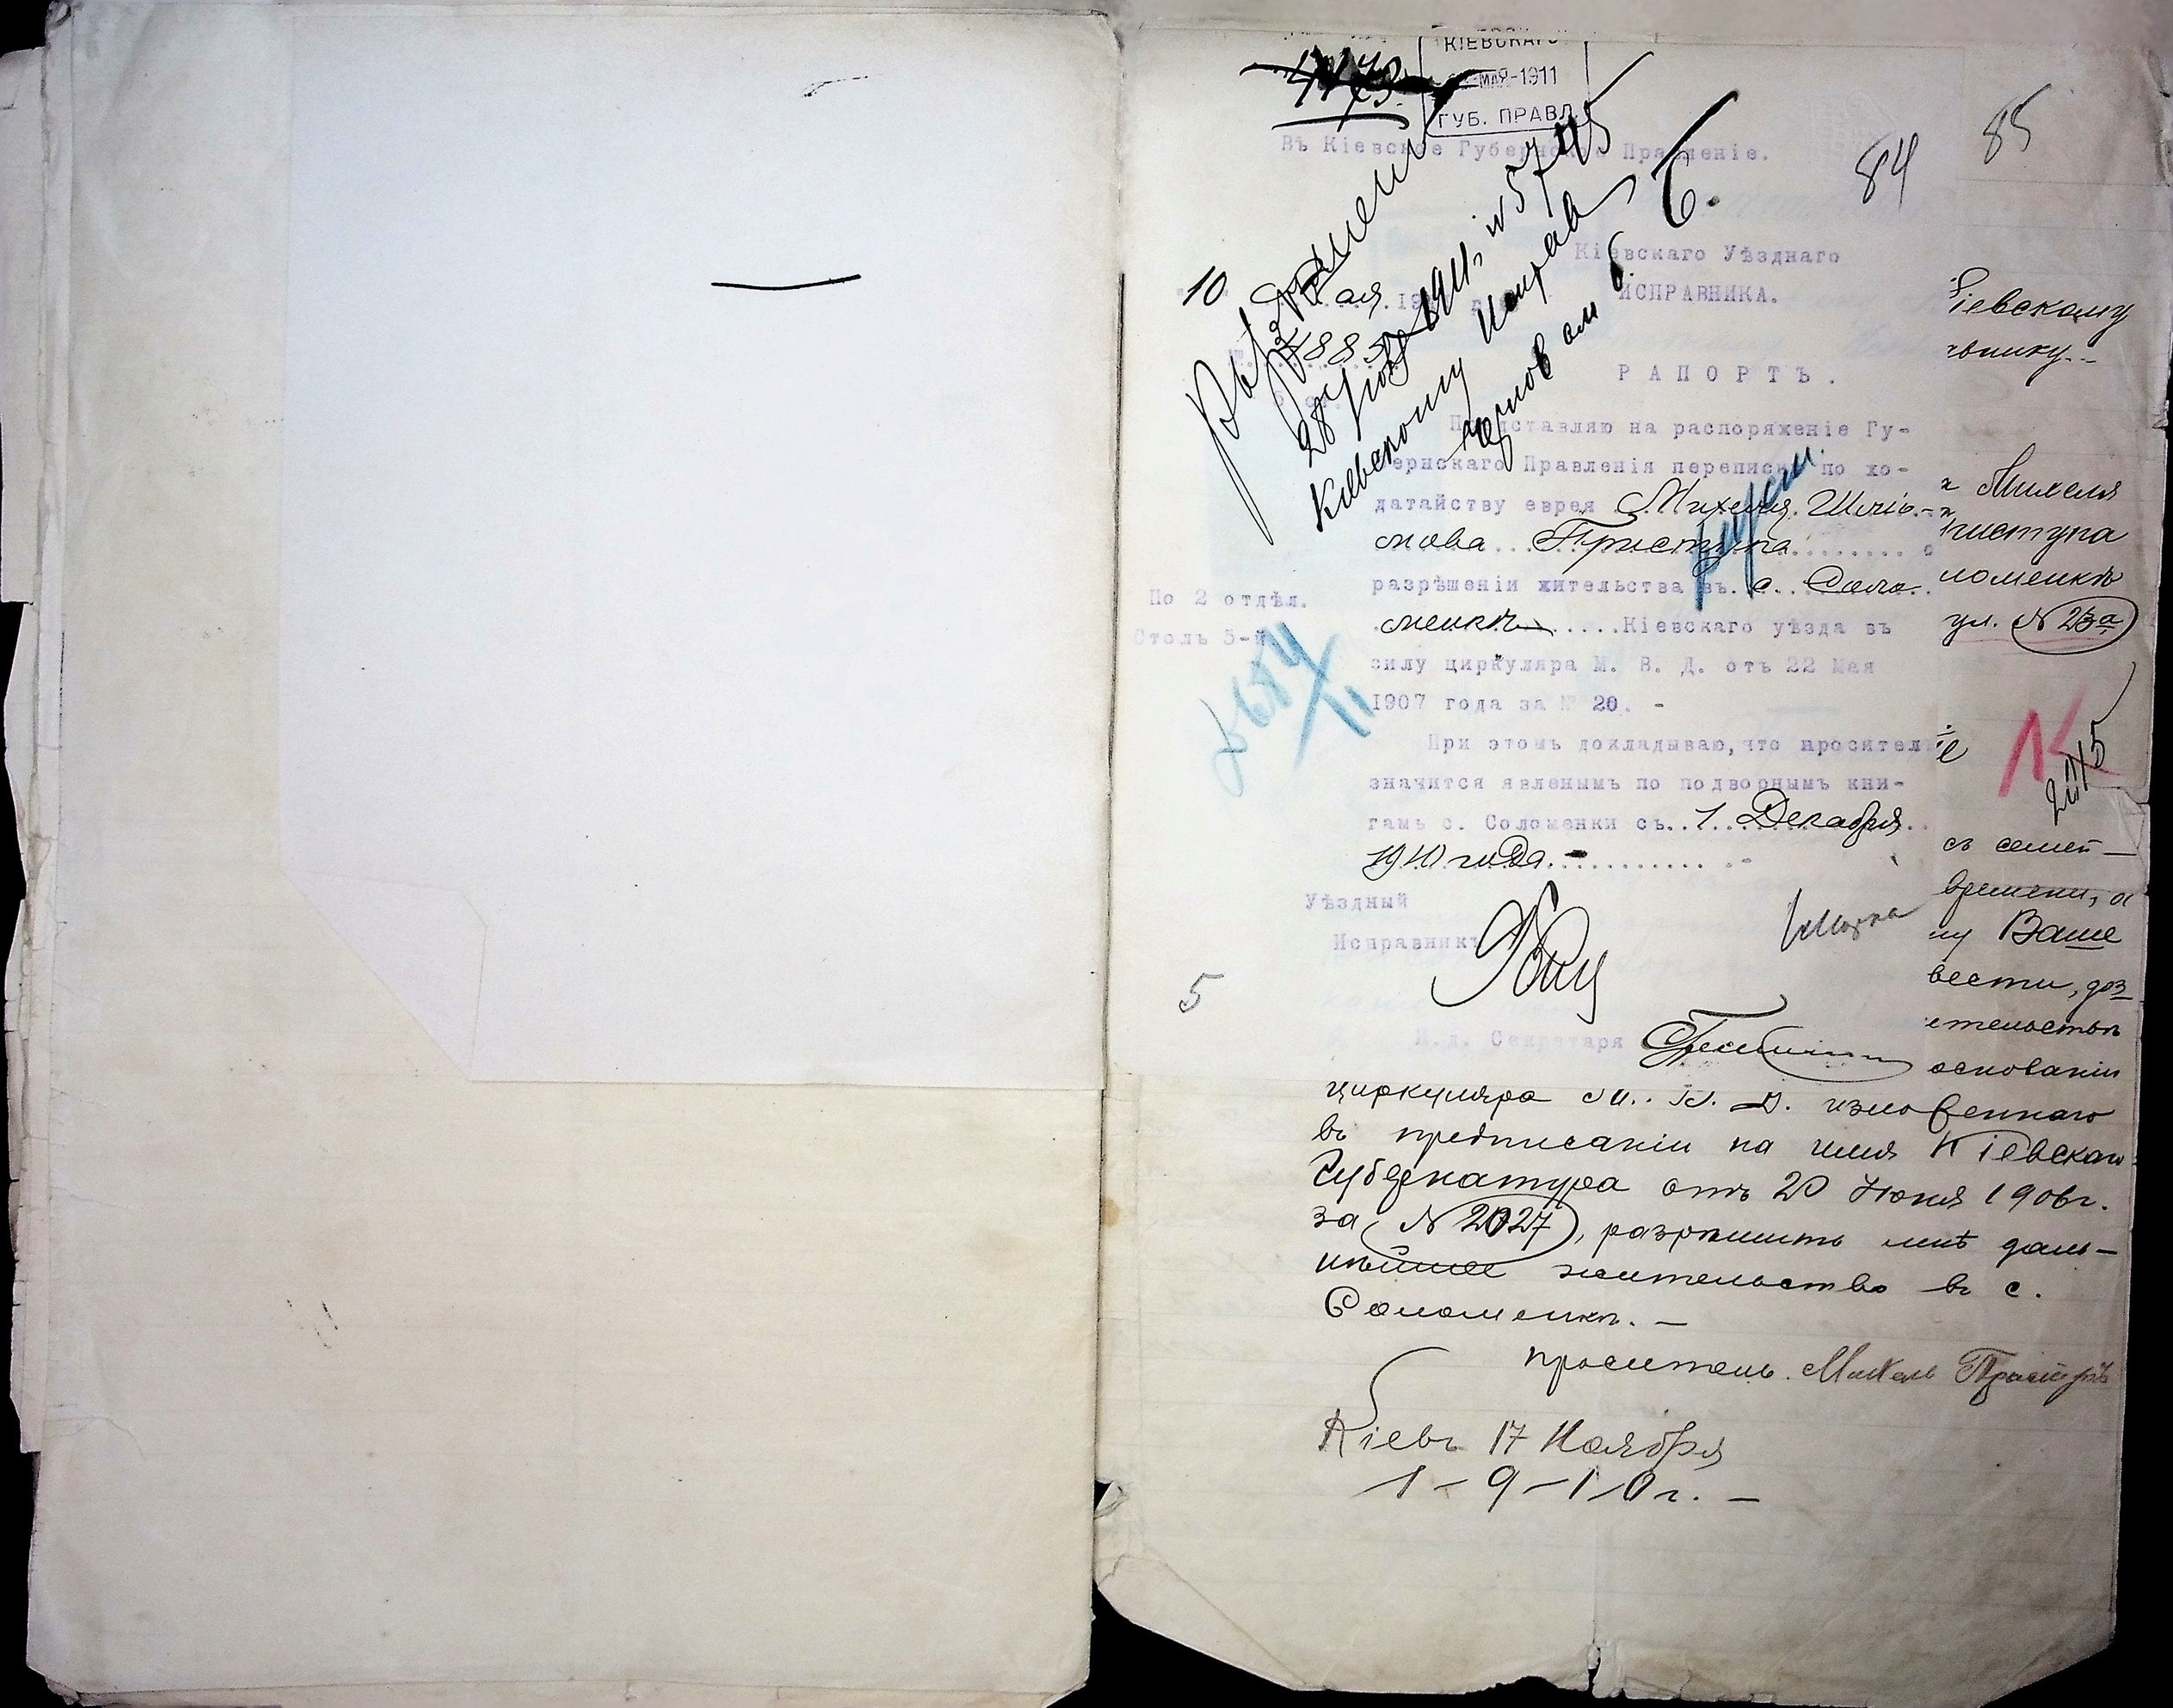 КІЕВСКАГО
МАЯ-1911
ГУБ. ПРАВЛ.
84
85
Въ Кіевское Губернское Правленіе.
Кіевскаго Уѣзднаго
ИСПРАВНИКА.
10 Мая
РАПОРТЪ.
28 1911, № 5745
Кіевскому
По 2 отдѣл.
Столъ 5-й
Представляю на распоряженіе Гу-
бернскаго Правленія переписку по хо-
датайству еврея Михеля Шлiо-
мова Приступа о
разрѣшеніи жительства въ с. Соло-
менкѣ Кіевскаго уѣзда въ
силу циркуляра М. В. Д. отъ 22 Мая
1907 года за № 20. -
При этомъ докладываю, что просител
значится явленымъ по подворнымъ кни-
гамъ с. Соломенки съ 1 Декабря
1910 года.
Уѣздный
Исправникъ
И.д. Секретаря
5
іевскому
внику.-
Михеля
риступа
ломенкѣ
ул. № 23а
15
съ семей-
времени, а
му Ваше
вести, доз
ительств
основаніи
циркуляра М. В. Д. изложеннаго
въ предписаніи на имя Кіевскаго
Губернатура отъ 20 Іюня 1906г.
за № 2027, разрѣшить мнѣ даль-
нѣйшее жительство въ с.
Соломенкѣ. -
проситель Михель Приступъ
Кіевъ 17 Ноября
1-9-10г. -